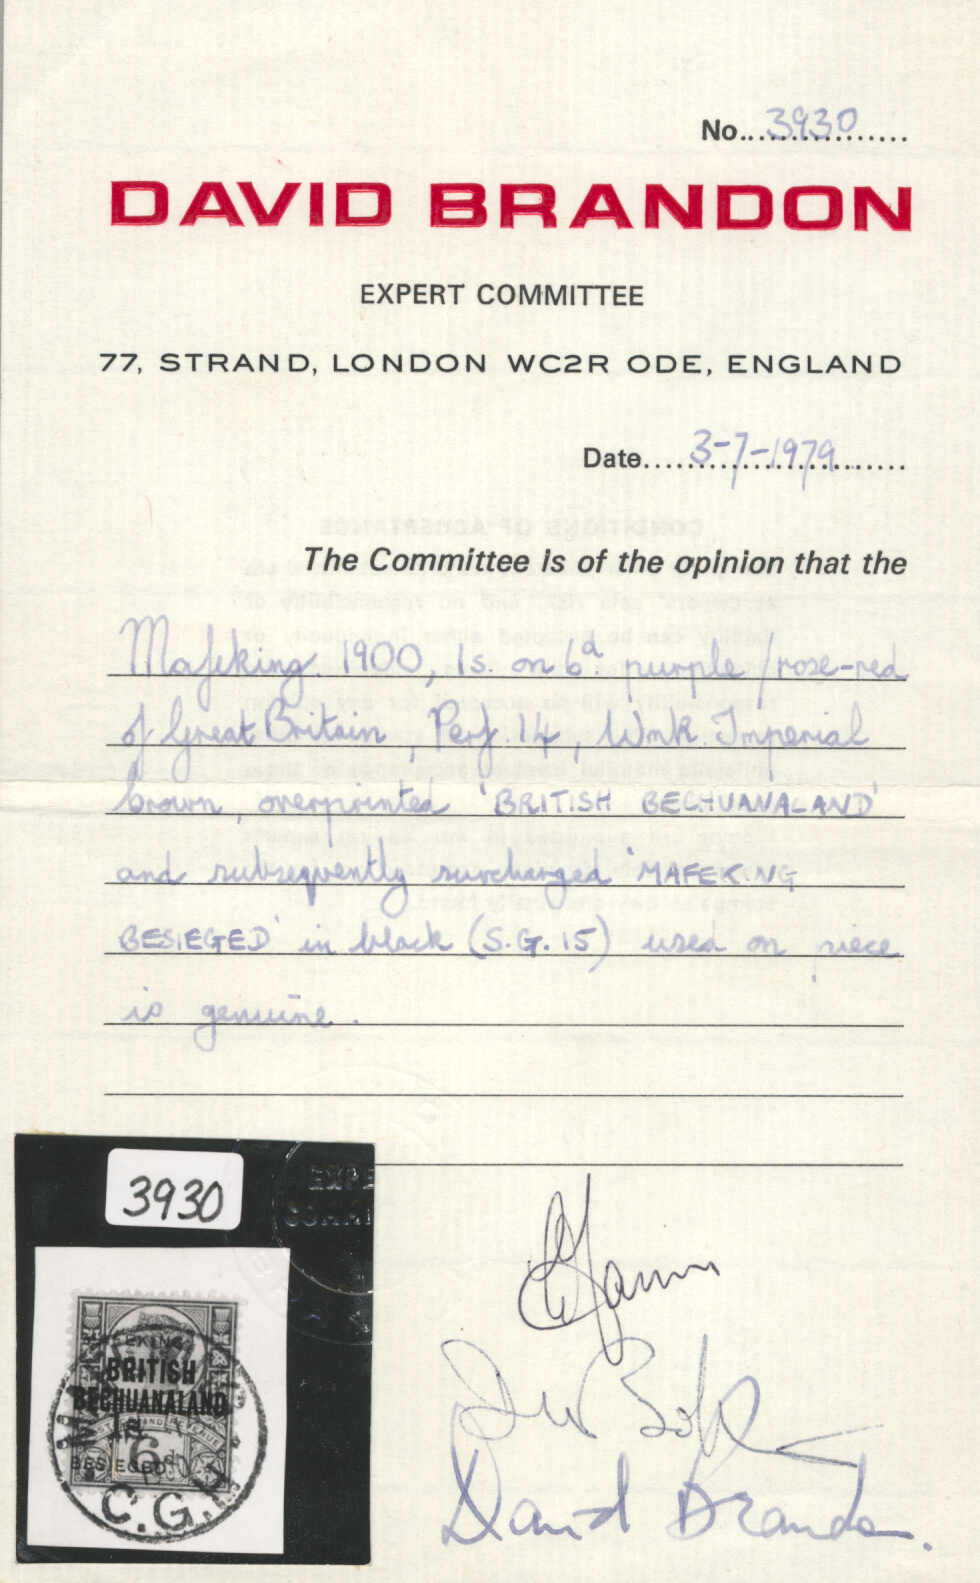 No. 3930
DAVID BRANDON
EXPERT COMMITTEE
77, STRAND, LONDON WC2R ODE, ENGLAND
Date 3-7-1979
The Committee is of the opinion that the
Mafeking. 1900, 1s. on 6d. purple/rose-red
of Great Britain, Perf. 14, Wmk. Imperial
Crown, overprinted 'BRITISH BECHUANALAND'
and subsequently surcharged 'MAFEKING
BESIEGED' in black (S.G. 15) used on piece
is genuine.
3930
MAFEKING,
BRITISH
BECHUANALAND
1s.
POSTAGE AND REVENUE
6d
BESIEGED.
C.G.H
David Brandon.